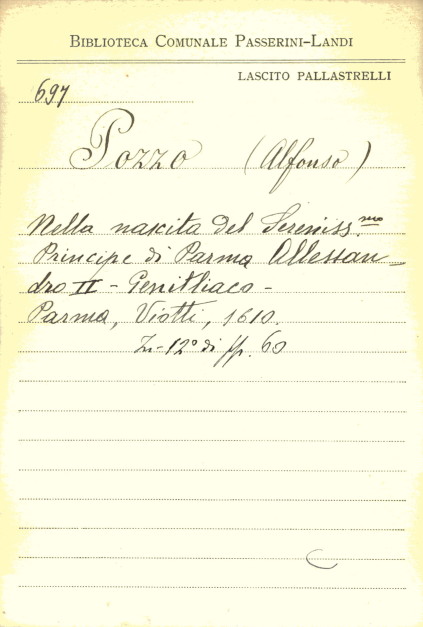 BIBLIOTECA COMUNALE PASSERINI-LANDI
LASCITO PALLASTRELLI
697
Pozzo (Alfonso)
Nella nascita del Sereniss.mo
Principe di Parma Allessan-
dro II - Genitliaco -
Parma, Viotti, 1610.
In-12° di pp. 60